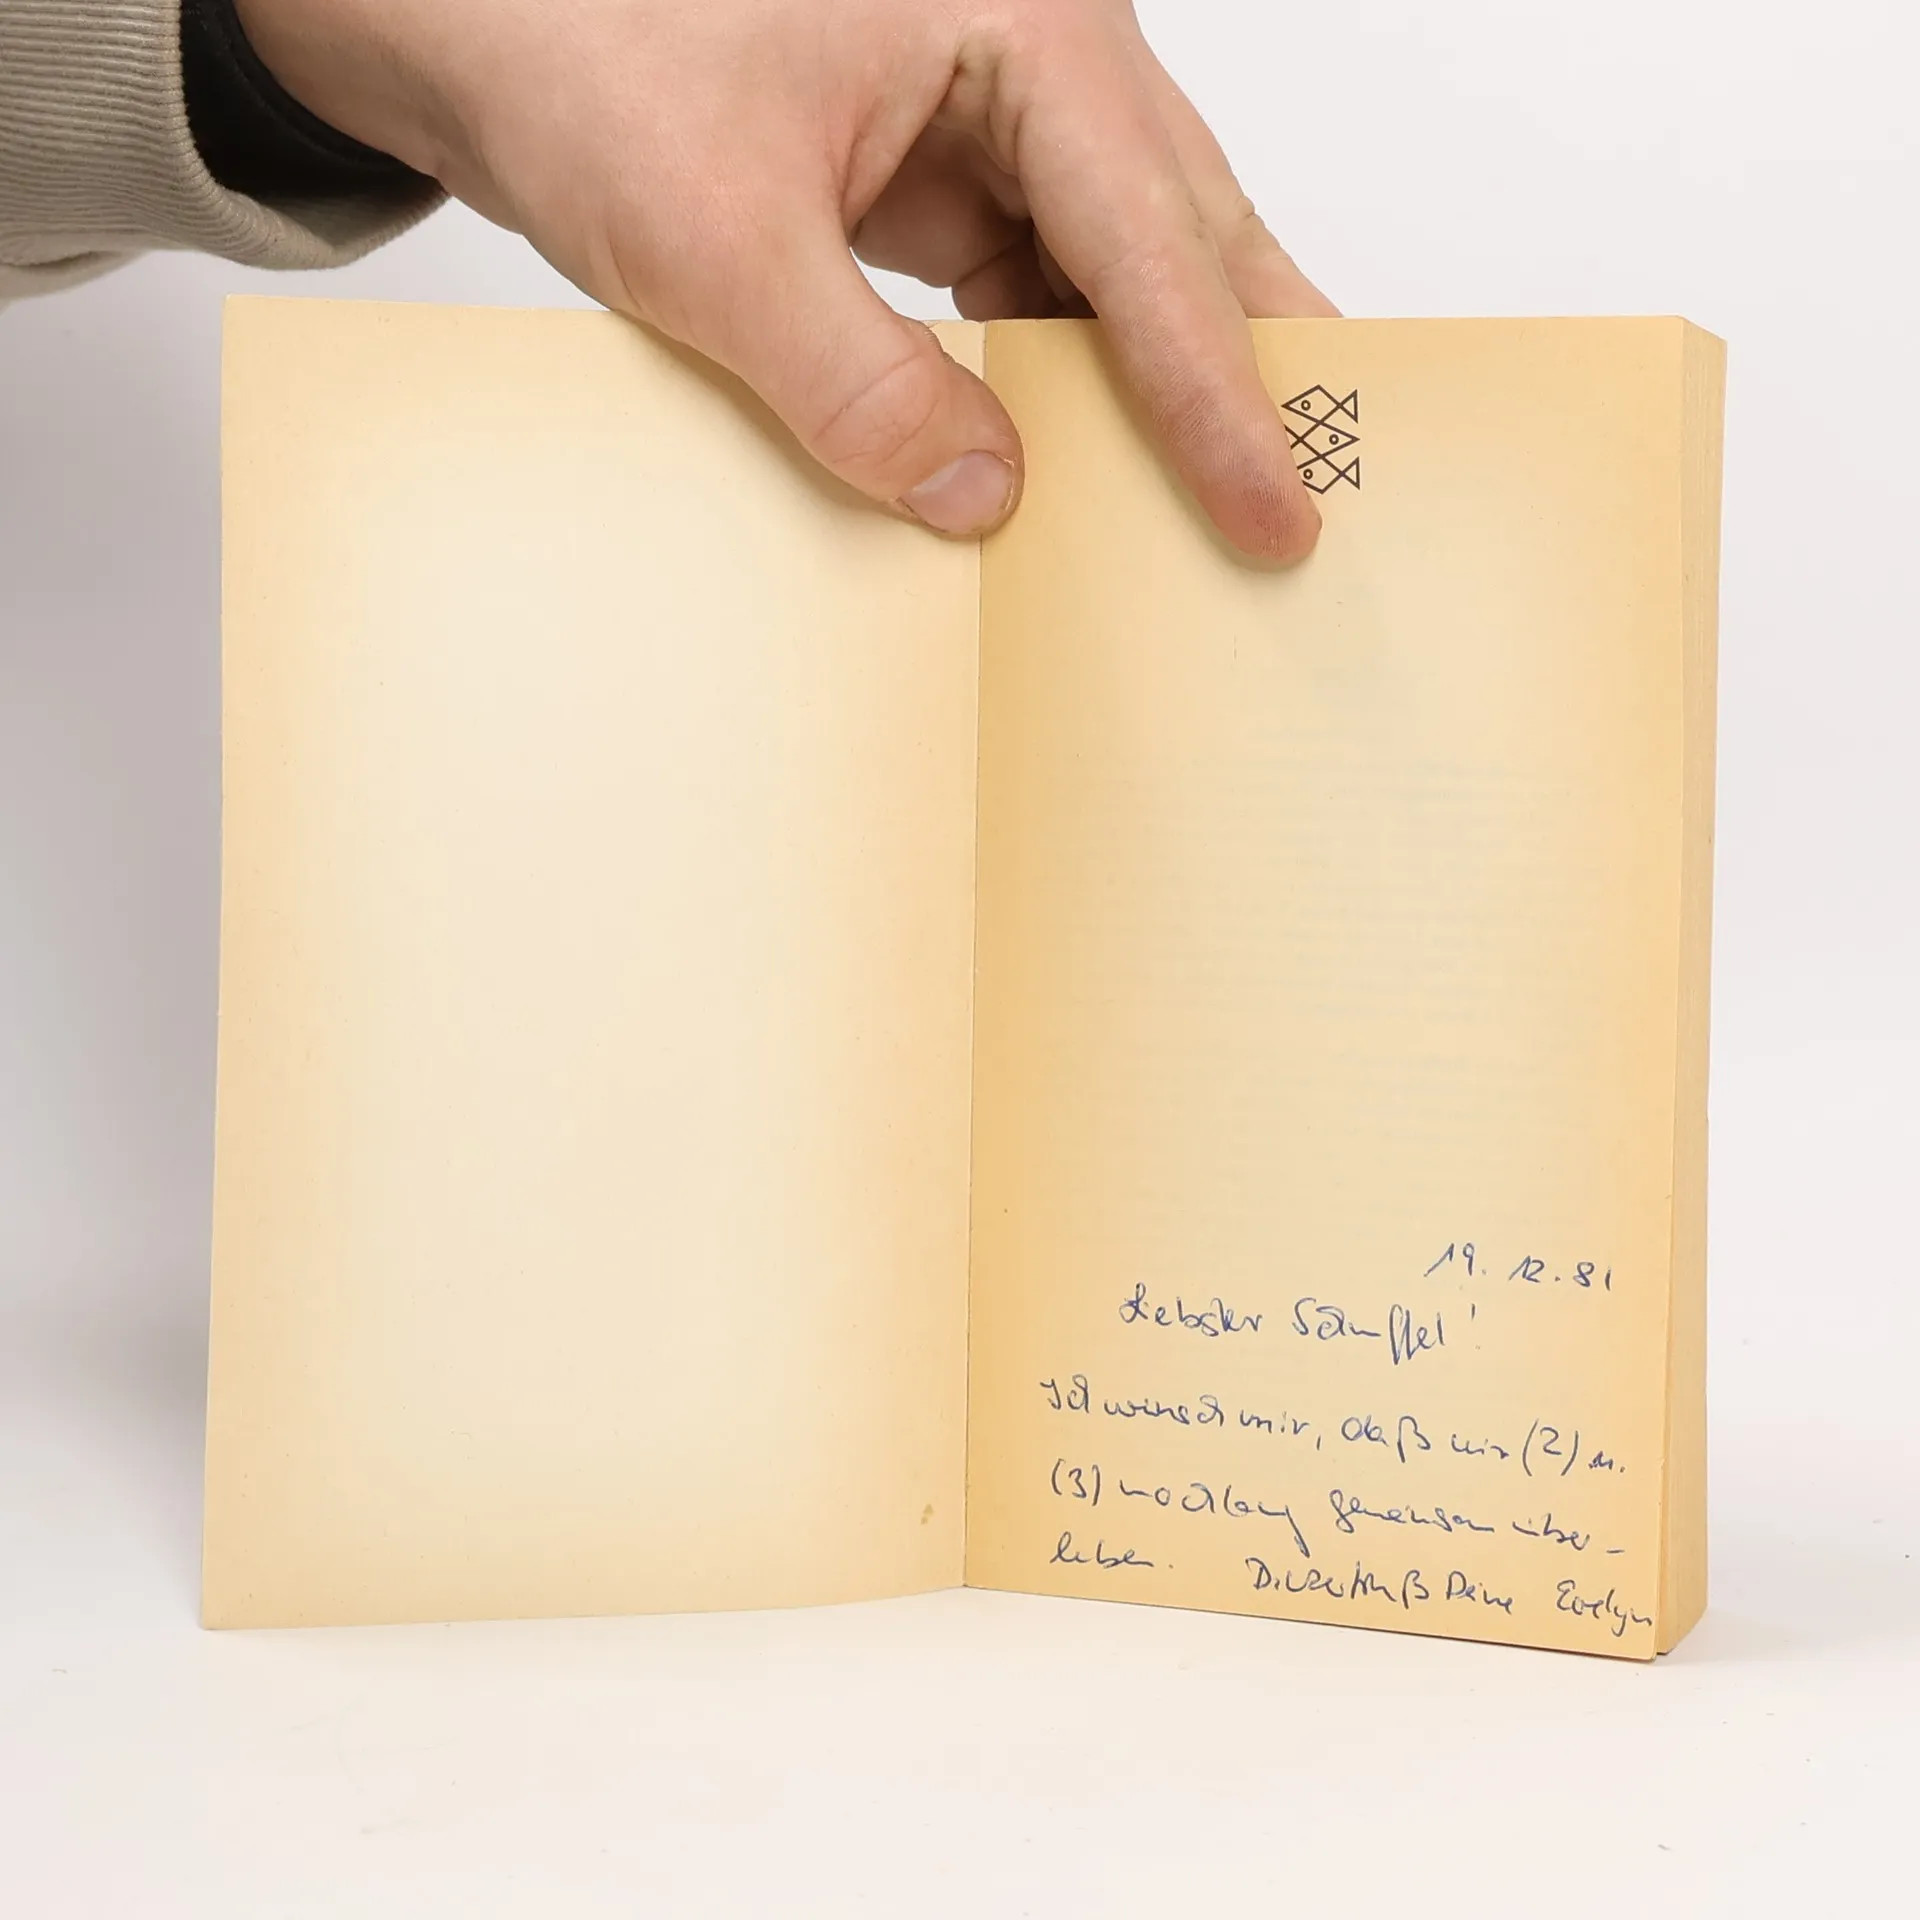 19. 12. 81
Liebster Schuffel!
Ich wünsch mir, daß wir (2) u.
(3) noch lang gemeinsam über-
leben. Deine Evelyn